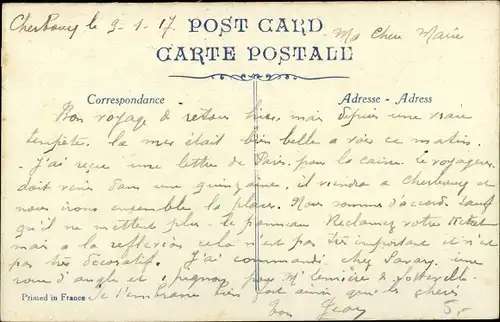 Cherbourg le 9-1-17.
POST CARD
CARTE POSTALE
Ma Chere Marie
Correspondance
Adresse - Adress
Bon voyage de retour hier mais depuis une vraie
tempête. la mer était bien belle a voir ce matin.
J'ai reçu une lettre de Paris pour la caisse. le voyageur
doit venir dans une quinzaine, il viendra a Cherbourg et
nous irons ensemble la placer. Nous sommes d'accord sauf
qu'il ne mettent plus le panneau Reclamez votre
mais a la reflexion cela n'est pas très important et n'est
pas très décoratif. J'ai commandé chez Savary une
roue d'angle et 1 pignon pour Mr Lemière de Sotteville
Je t'embrasse bien fort ainsi que les chéris
Printed in France
ton Jean
5.-